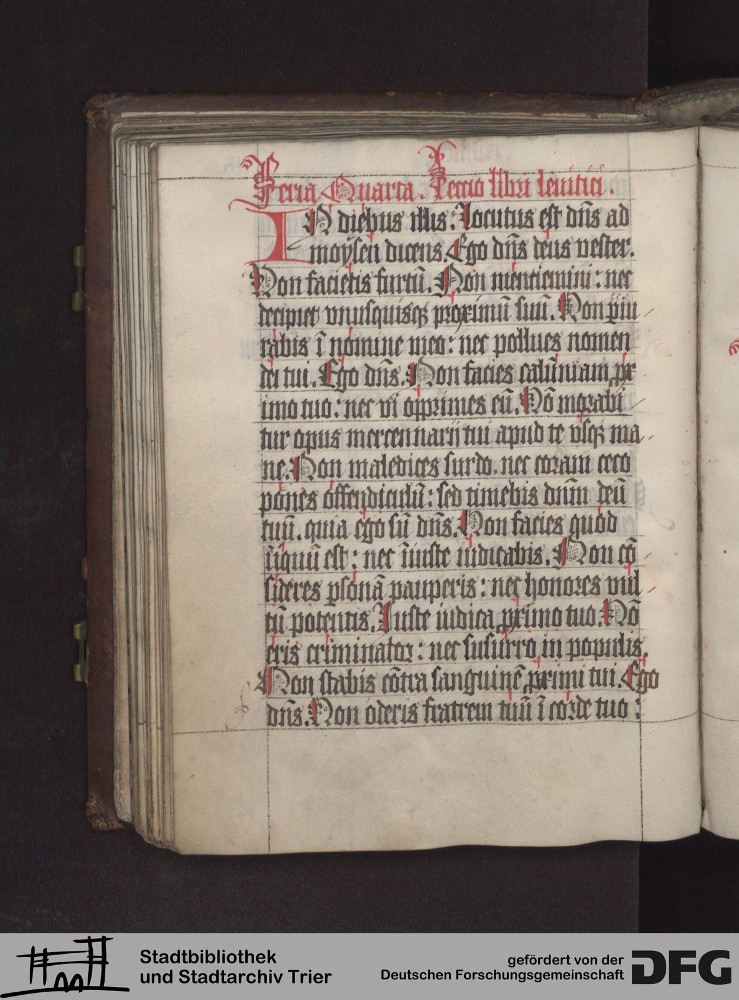 Feria Quarta. Lectio libri leuitici.
IN diebus illis. Locutus est dn̄s ad
moysen dicens. Ego dn̄s deus vester.
Non facietis furtū. Non mentiemini : nec
decipiet vnusquisqꝫ proximū suū. Non ꝑiu
rabis ī nomine meo : nec pollues nomen
dei tui. Ego dn̄s. Non facies calūniam pr
imo tuo : nec vi opprimes eū. Nō morabi
tur opus mercennarij tui apud te vsqꝫ ma
ne. Non maledices surdo. nec coram ceco
pones offendiculū : sed timebis dnm̄ deū
tuū. quia ego sū dn̄s. Non facies quod
īiquū est : nec īiuste iudicabis. Non cō
sideres ꝑsonā pauperis : nec honores vul
tū potentis. Iuste iudica primo tuo. Nō
eris criminator : nec susurro in populis.
Non stabis cōtra sanguinē primi tui. Ego
dn̄s. Non oderis fratrem tuū ī corde tuo :
Stadtbibliothek
und Stadtarchiv Trier
gefördert von der
Deutschen Forschungsgemeinschaft
DFG